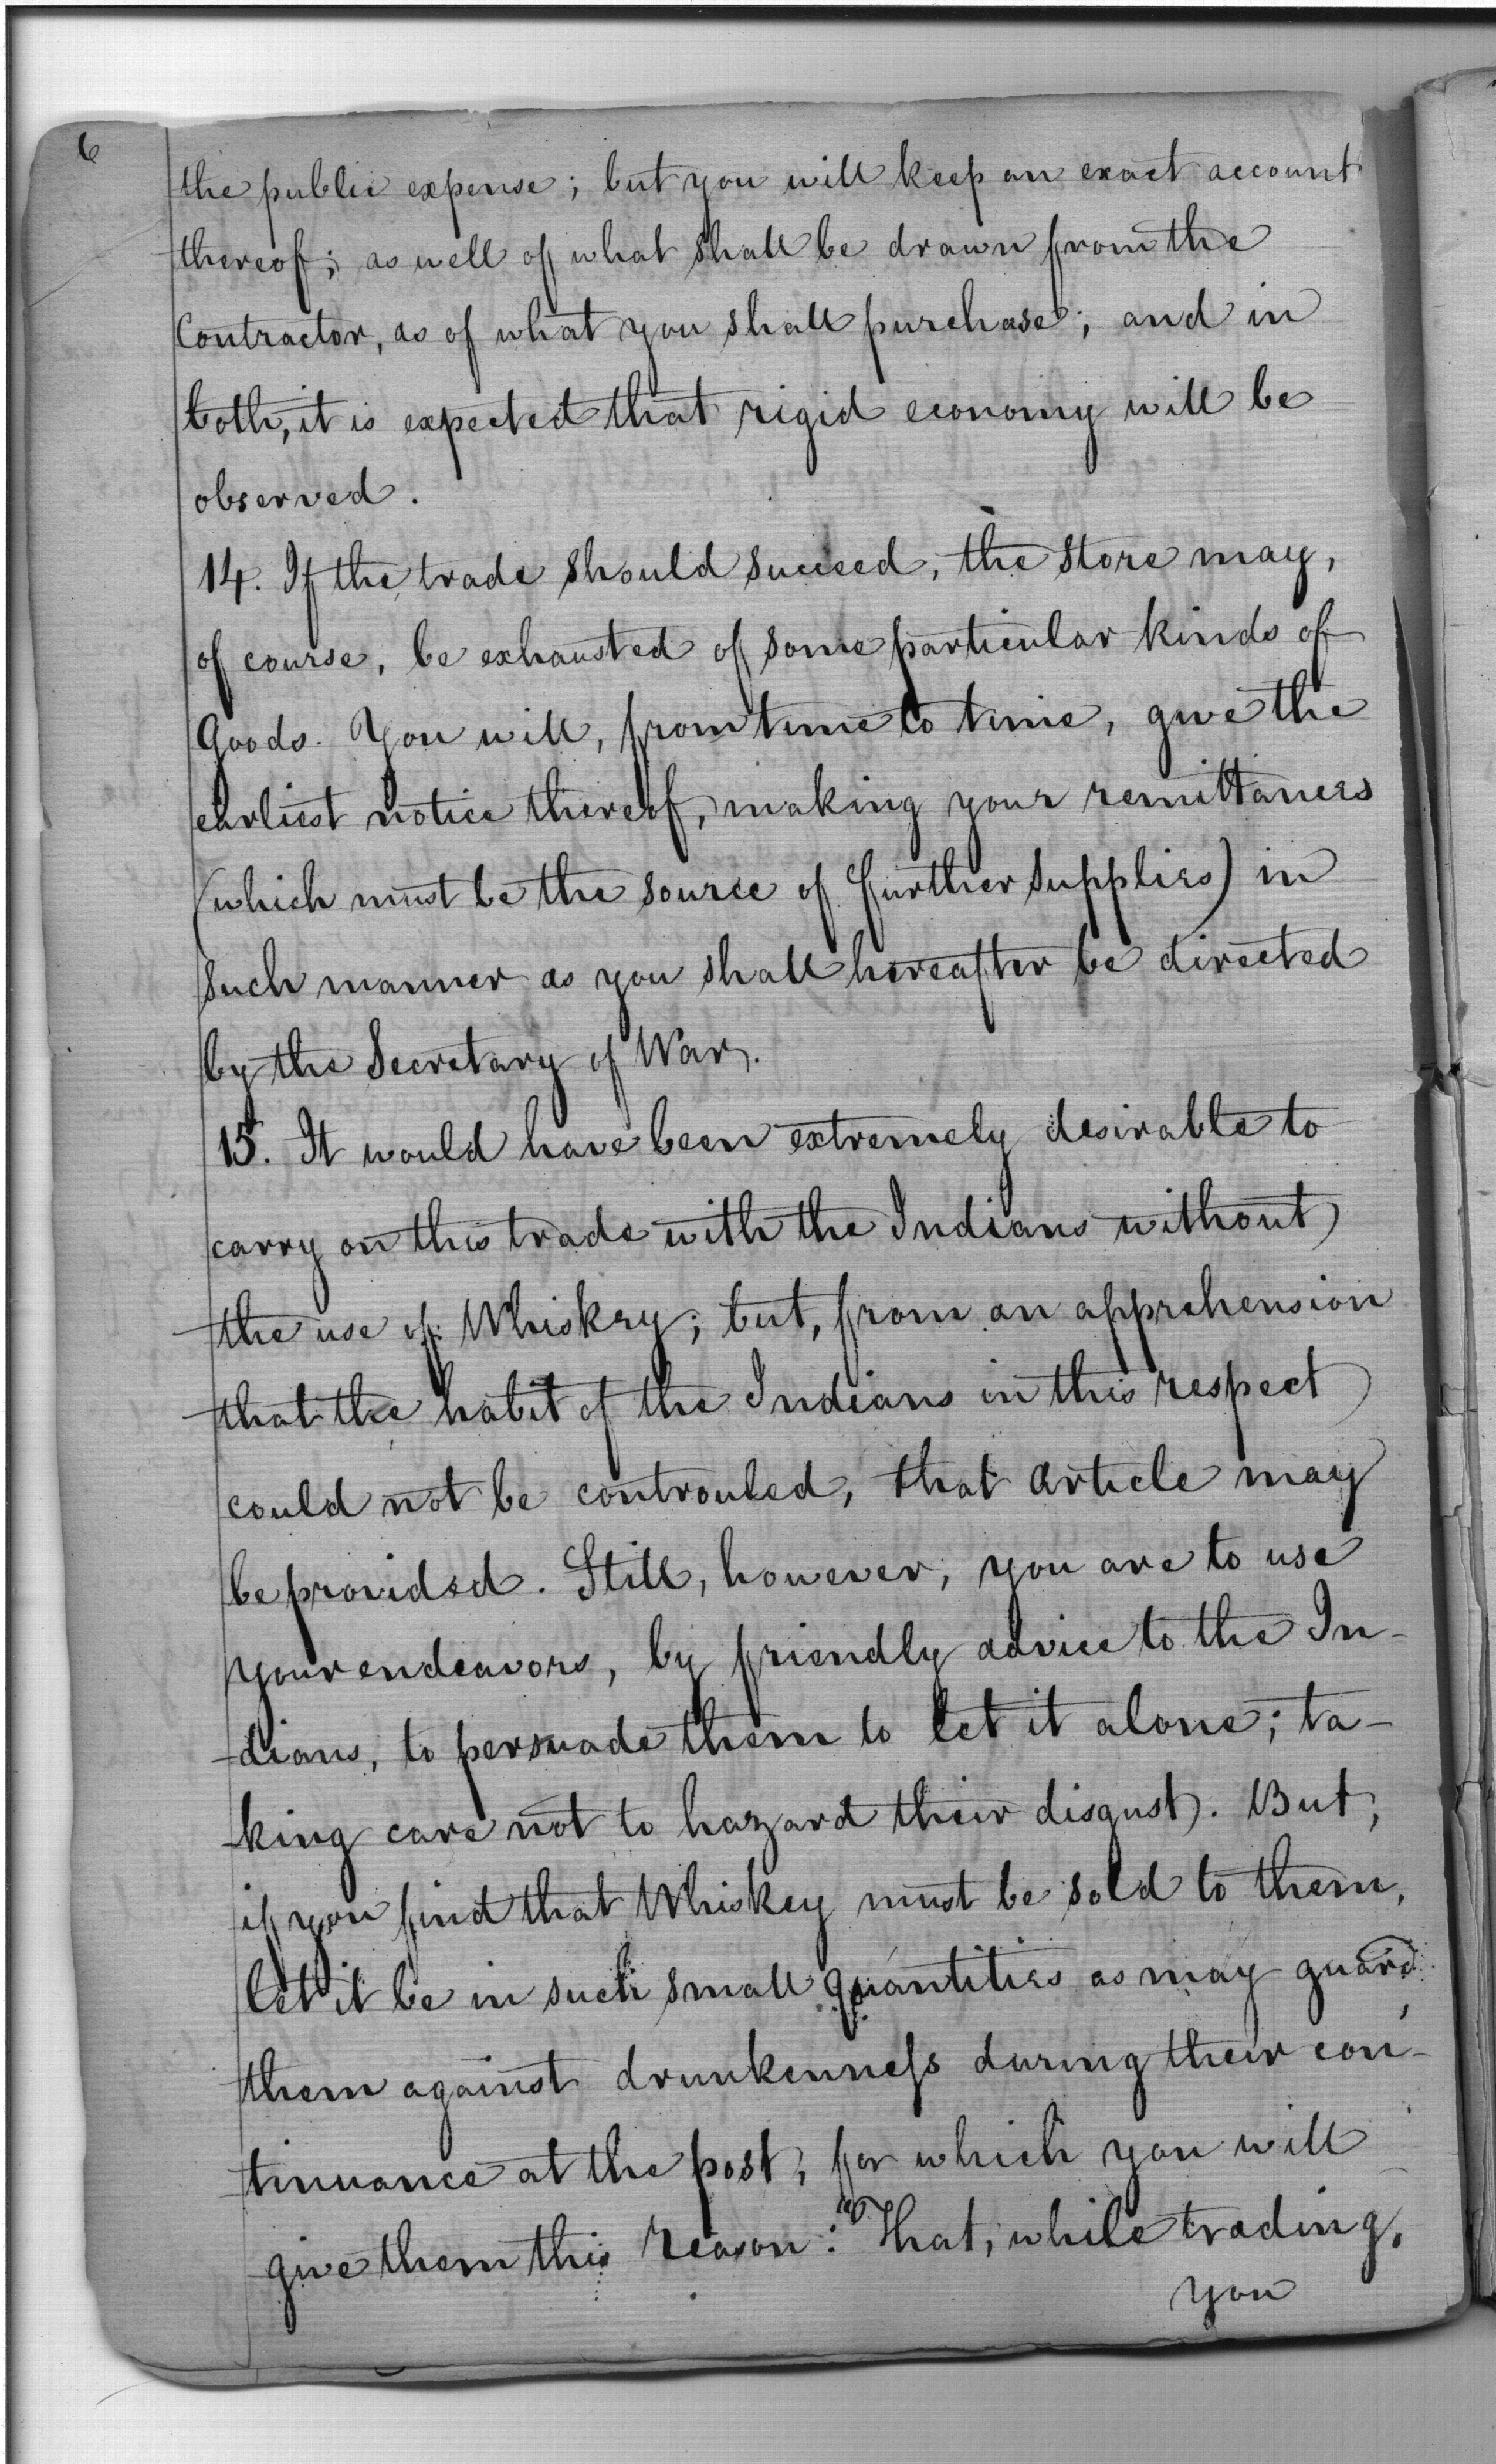 6
the public expense; but you will keep an exact account
thereof; as well of what shall be drawn from the
Contractor, as of what you shall purchase; and in
both, it is expected that rigid economy will be
observed.
14. If the trade should succeed, the store may,
of course, be exhausted of some particular kinds of
Goods. You will, from time to time, give the
earliest notice thereof, making your remittances
(which must be the source of further supplies) in
such manner as you shall hereafter be directed
by the Secretary of War.
15. It would have been extremely desirable to
carry on this trade with the Indians without
the use of Whiskey; but, from an apprehension
that the habit of the Indians in this respect
could not be controuled, that article may
be provided. Still, however, you are to use
your endeavors, by friendly advice to the In-
-dians, to persuade them to let it alone; ta-
-king care not to hazard their disgust. But,
if you find that Whiskey must be sold to them,
let it be in such small quantities as may guard
them against drunkenneſs during their con-
-tinuance at the post, for which you will
give them this reason: "That, while trading,
you